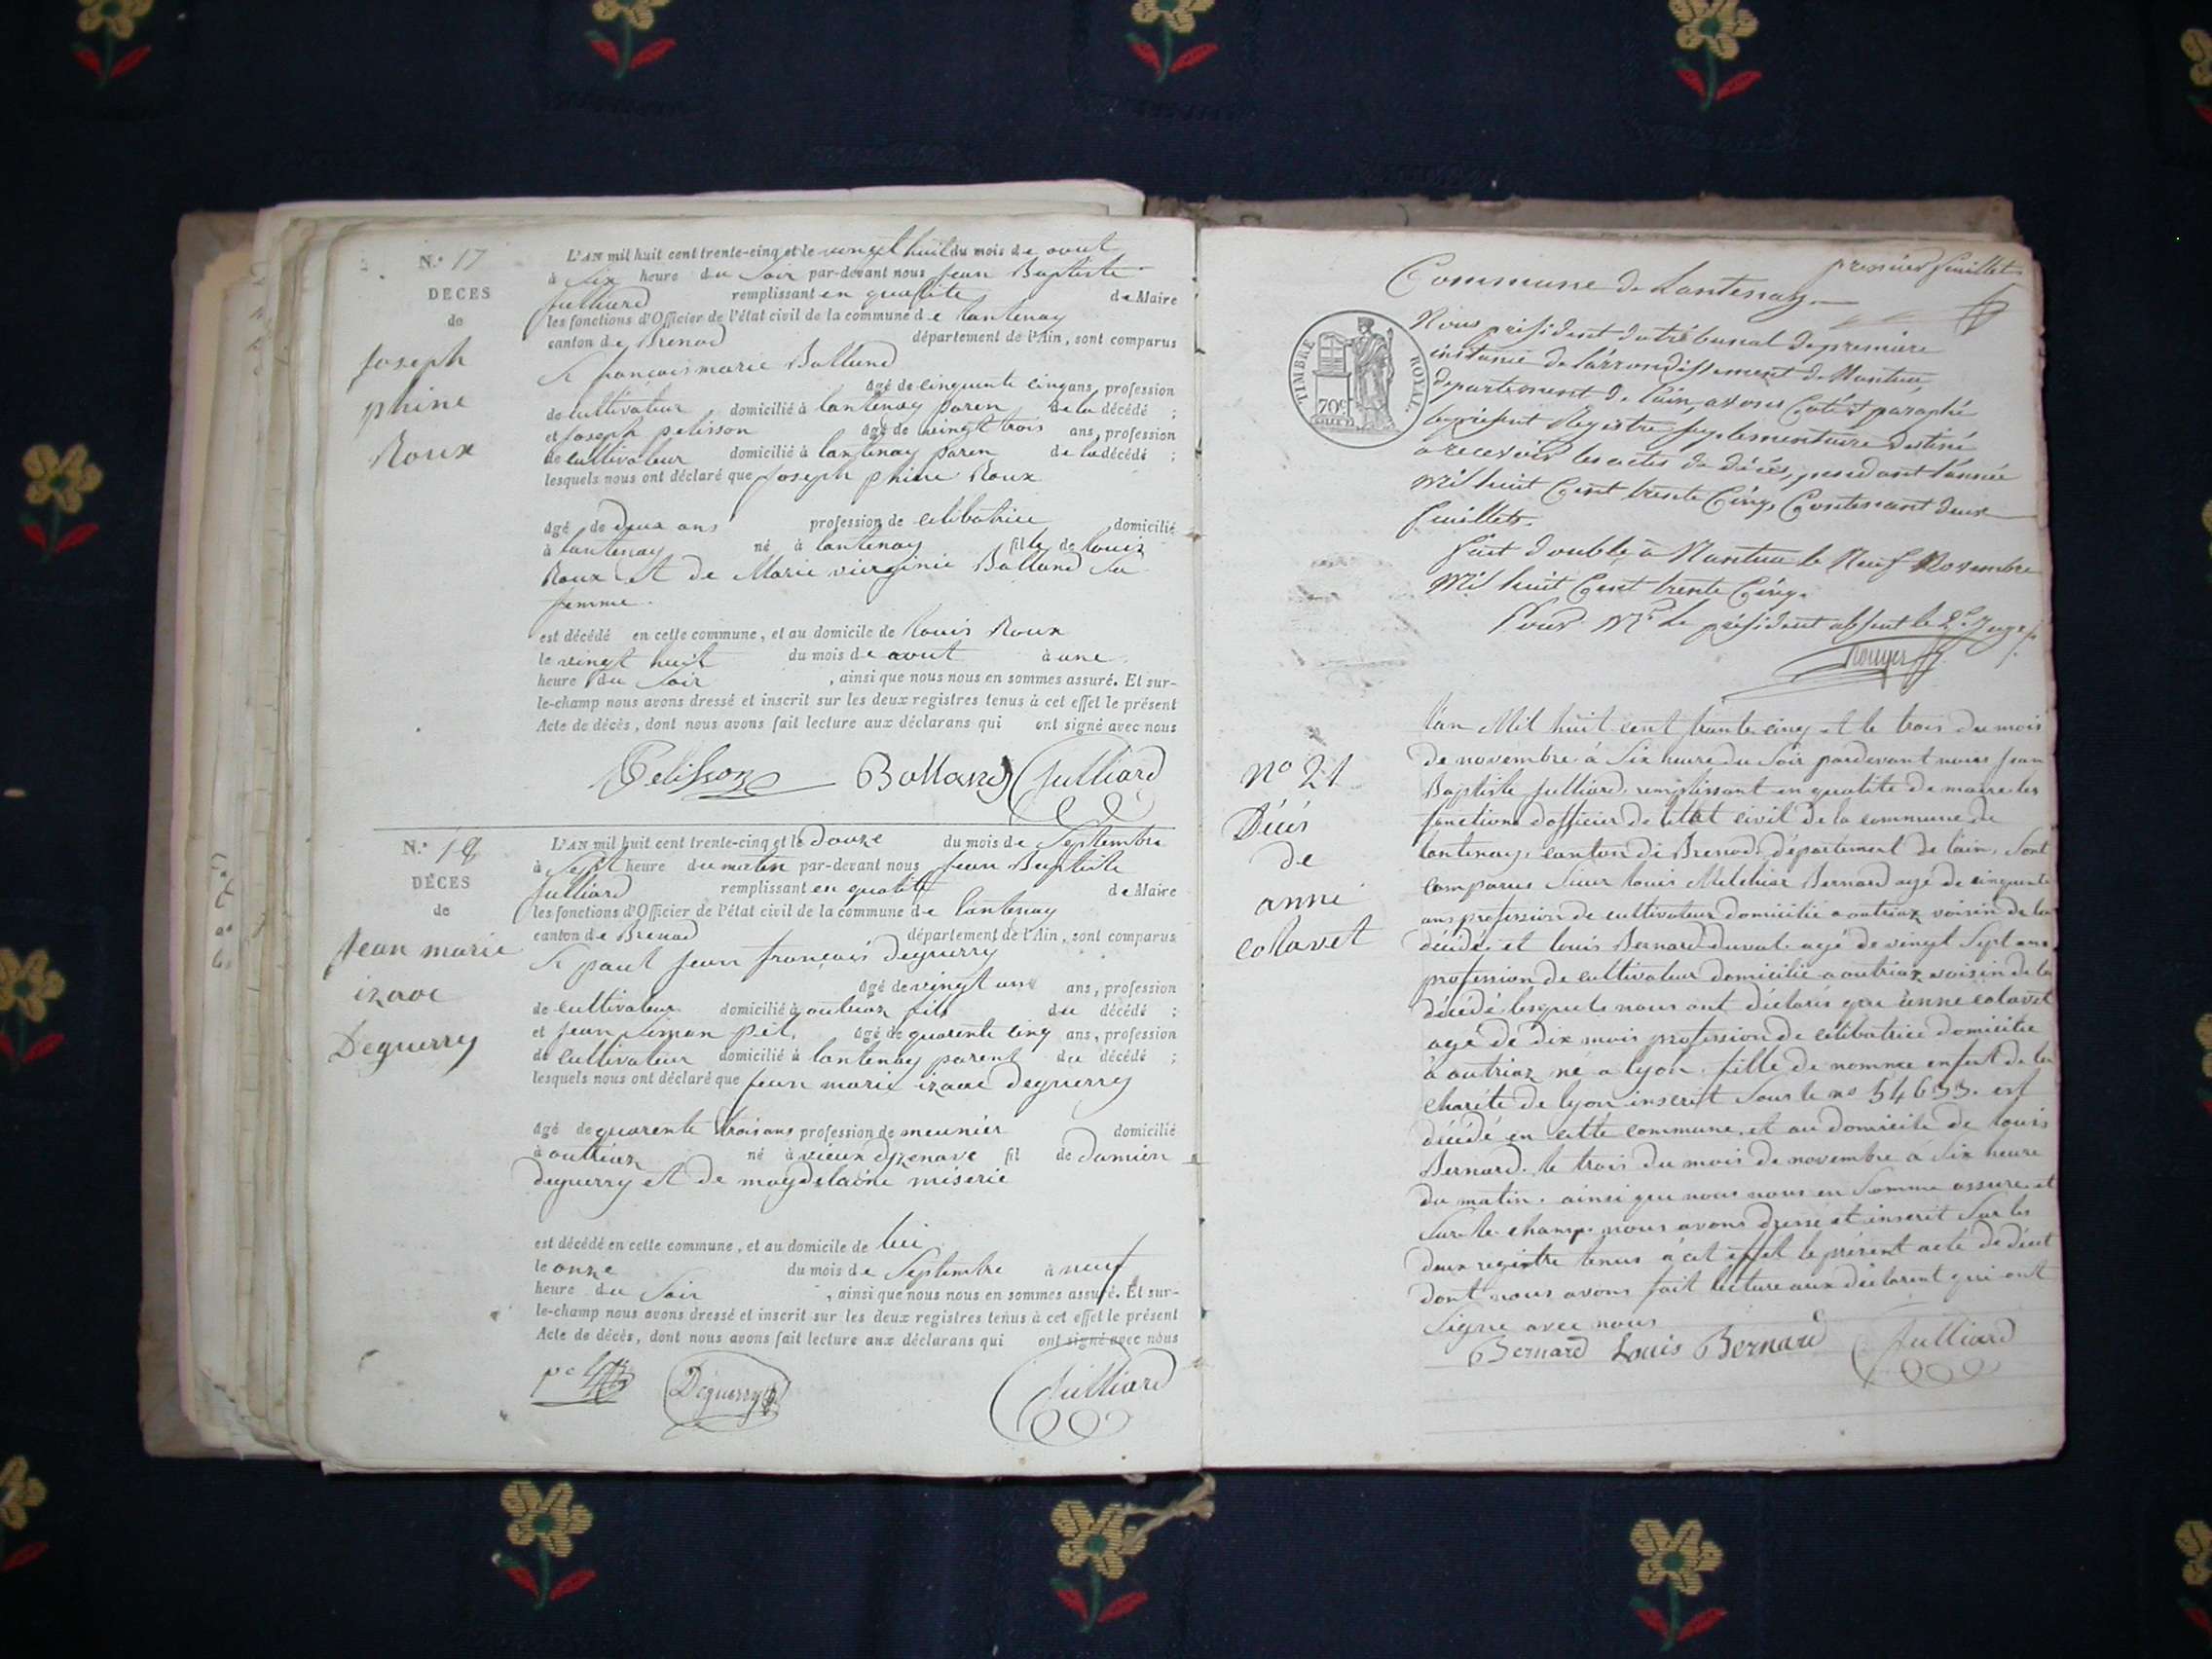 N.º 17
DECES
de
Joseph
phine
Roux
L'AN mil huit cent trente-cinq et le vingt huit du mois de aout
à Six heure du Soir par-devant nous Jean Baptiste
Julliard remplissant en qualite de Maire
les fonctions d'Officier de l'état civil de la commune de lantenay
canton de Brenod département de l'Ain, sont comparus
Sr françois marie Balland
agé de cinquante cinq ans, profession
de cultivateur domicilié à lantenay paren de la décédé ;
et Joseph pelisson agé de vingt trois ans, profession
de cultivateur domicilié à lantenay paren de la décédé ;
lesquels nous ont déclaré que Joseph phine Roux
agé de deux ans profession de celibatrice domicilié
à lantenay né à lantenay fille de louis
Roux et de Marie virginie Balland Sa
femme.
est décédé en cette commune, et au domicile de louis Roux
le vingt huit du mois de aout à une
heure du Soir , ainsi que nous nous en sommes assuré. Et sur-
le-champ nous avons dressé et inscrit sur les deux registres tenus à cet effet le présent
Acte de décès, dont nous avons fait lecture aux déclarans qui ont signé avec nous
Pelisson Balland Julliard
N.º 18
DÉCES
de
Jean marie
izaac
Deguerry
L'AN mil huit cent trente-cinq et le Douze du mois de Septembre
à Sept heure du matin par-devant nous Jean Baptiste
Julliard remplissant en qualité de Maire
les fonctions d'Officier de l'état civil de la commune de lantenay
canton de Brenod département de l'Ain, sont comparus
Sr paul Jean françois deguerry
agé de vingt un ans, profession
de cultivateur domicilié à outriaz fils du décédé ;
et Jean Simon pel, agé de quarente cinq ans, profession
de cultivateur domicilié à lantenay parent du décédé ;
lesquels nous ont déclaré que Jean marie izaac deguerry
agé de quarente trois ans profession de meunier domicilié
à outriaz né à vieux d'izenave fil de damien
deguerry et de magdelaine miserie
est décédé en cette commune, et au domicile de lui
le onze du mois de Septembre à neuf
heure du Soir , ainsi que nous nous en sommes assuré. Et sur-
le-champ nous avons dressé et inscrit sur les deux registres tenus à cet effet le présent
Acte de décès, dont nous avons fait lecture aux déclarans qui ont signé avec nous
Deguerry Julliard
premier feuillet
Commune de Lantenay
TIMBRE ROYAL
70 c
Nous président du tribunal de première
instance de l'arrondissement de Nantua,
département de l'ain, avons Coté et paraphé
le présent Registre supplementaire destiné
a recevoir les actes de décès, pendant l'année
Mil huit Cent trente Cinq, Contenant deux
feuillets.
fait double à Nantua le Neuf Novembre
Mil huit Cent trente Cinq.
Pour Mr le président absent le 2e Juge
Rouyer
nº 21
Décés
de
anne
colavet
l'an Mil huit cent trente cinq et le trois du mois
de novembre à Six heure du Soir pardevant nous Jean
Baptiste Julliard, remplissant en qualité de maire les
fonctions d'officier de l'état civil de la commune de
lantenay, canton de Brenod, département de l'ain, Sont
comparus Sieur louis Melchior Bernard agé de cinquante
ans profession de cultivateur domicilié a outriaz voisin de la
décédé et louis Bernard duval agé de vingt Sept ans
profession de cultivateur domicilié a outriaz voisin de la
décédé lesquels nous ont déclarés que anne colavet
agé de dix mois profession de célibatrice domicilié
à outriaz né a lyon, fille de nommee enfent de la
charité de lyon inscrit Sous le nº 54633. est
décédé en cette commune, et au domicile de louis
Bernard. le trois du mois de novembre à Six heure
du matin. ainsi que nous nous en Somme assure et
Sur-le-champ. nous avons dressé et inscrit Sur les
deux registre tenus à cet effet le présent acte de décet
dont nous avons fait lecture aux déclarent qui ont
Signe avec nous
Bernard Louis Bernard Julliard